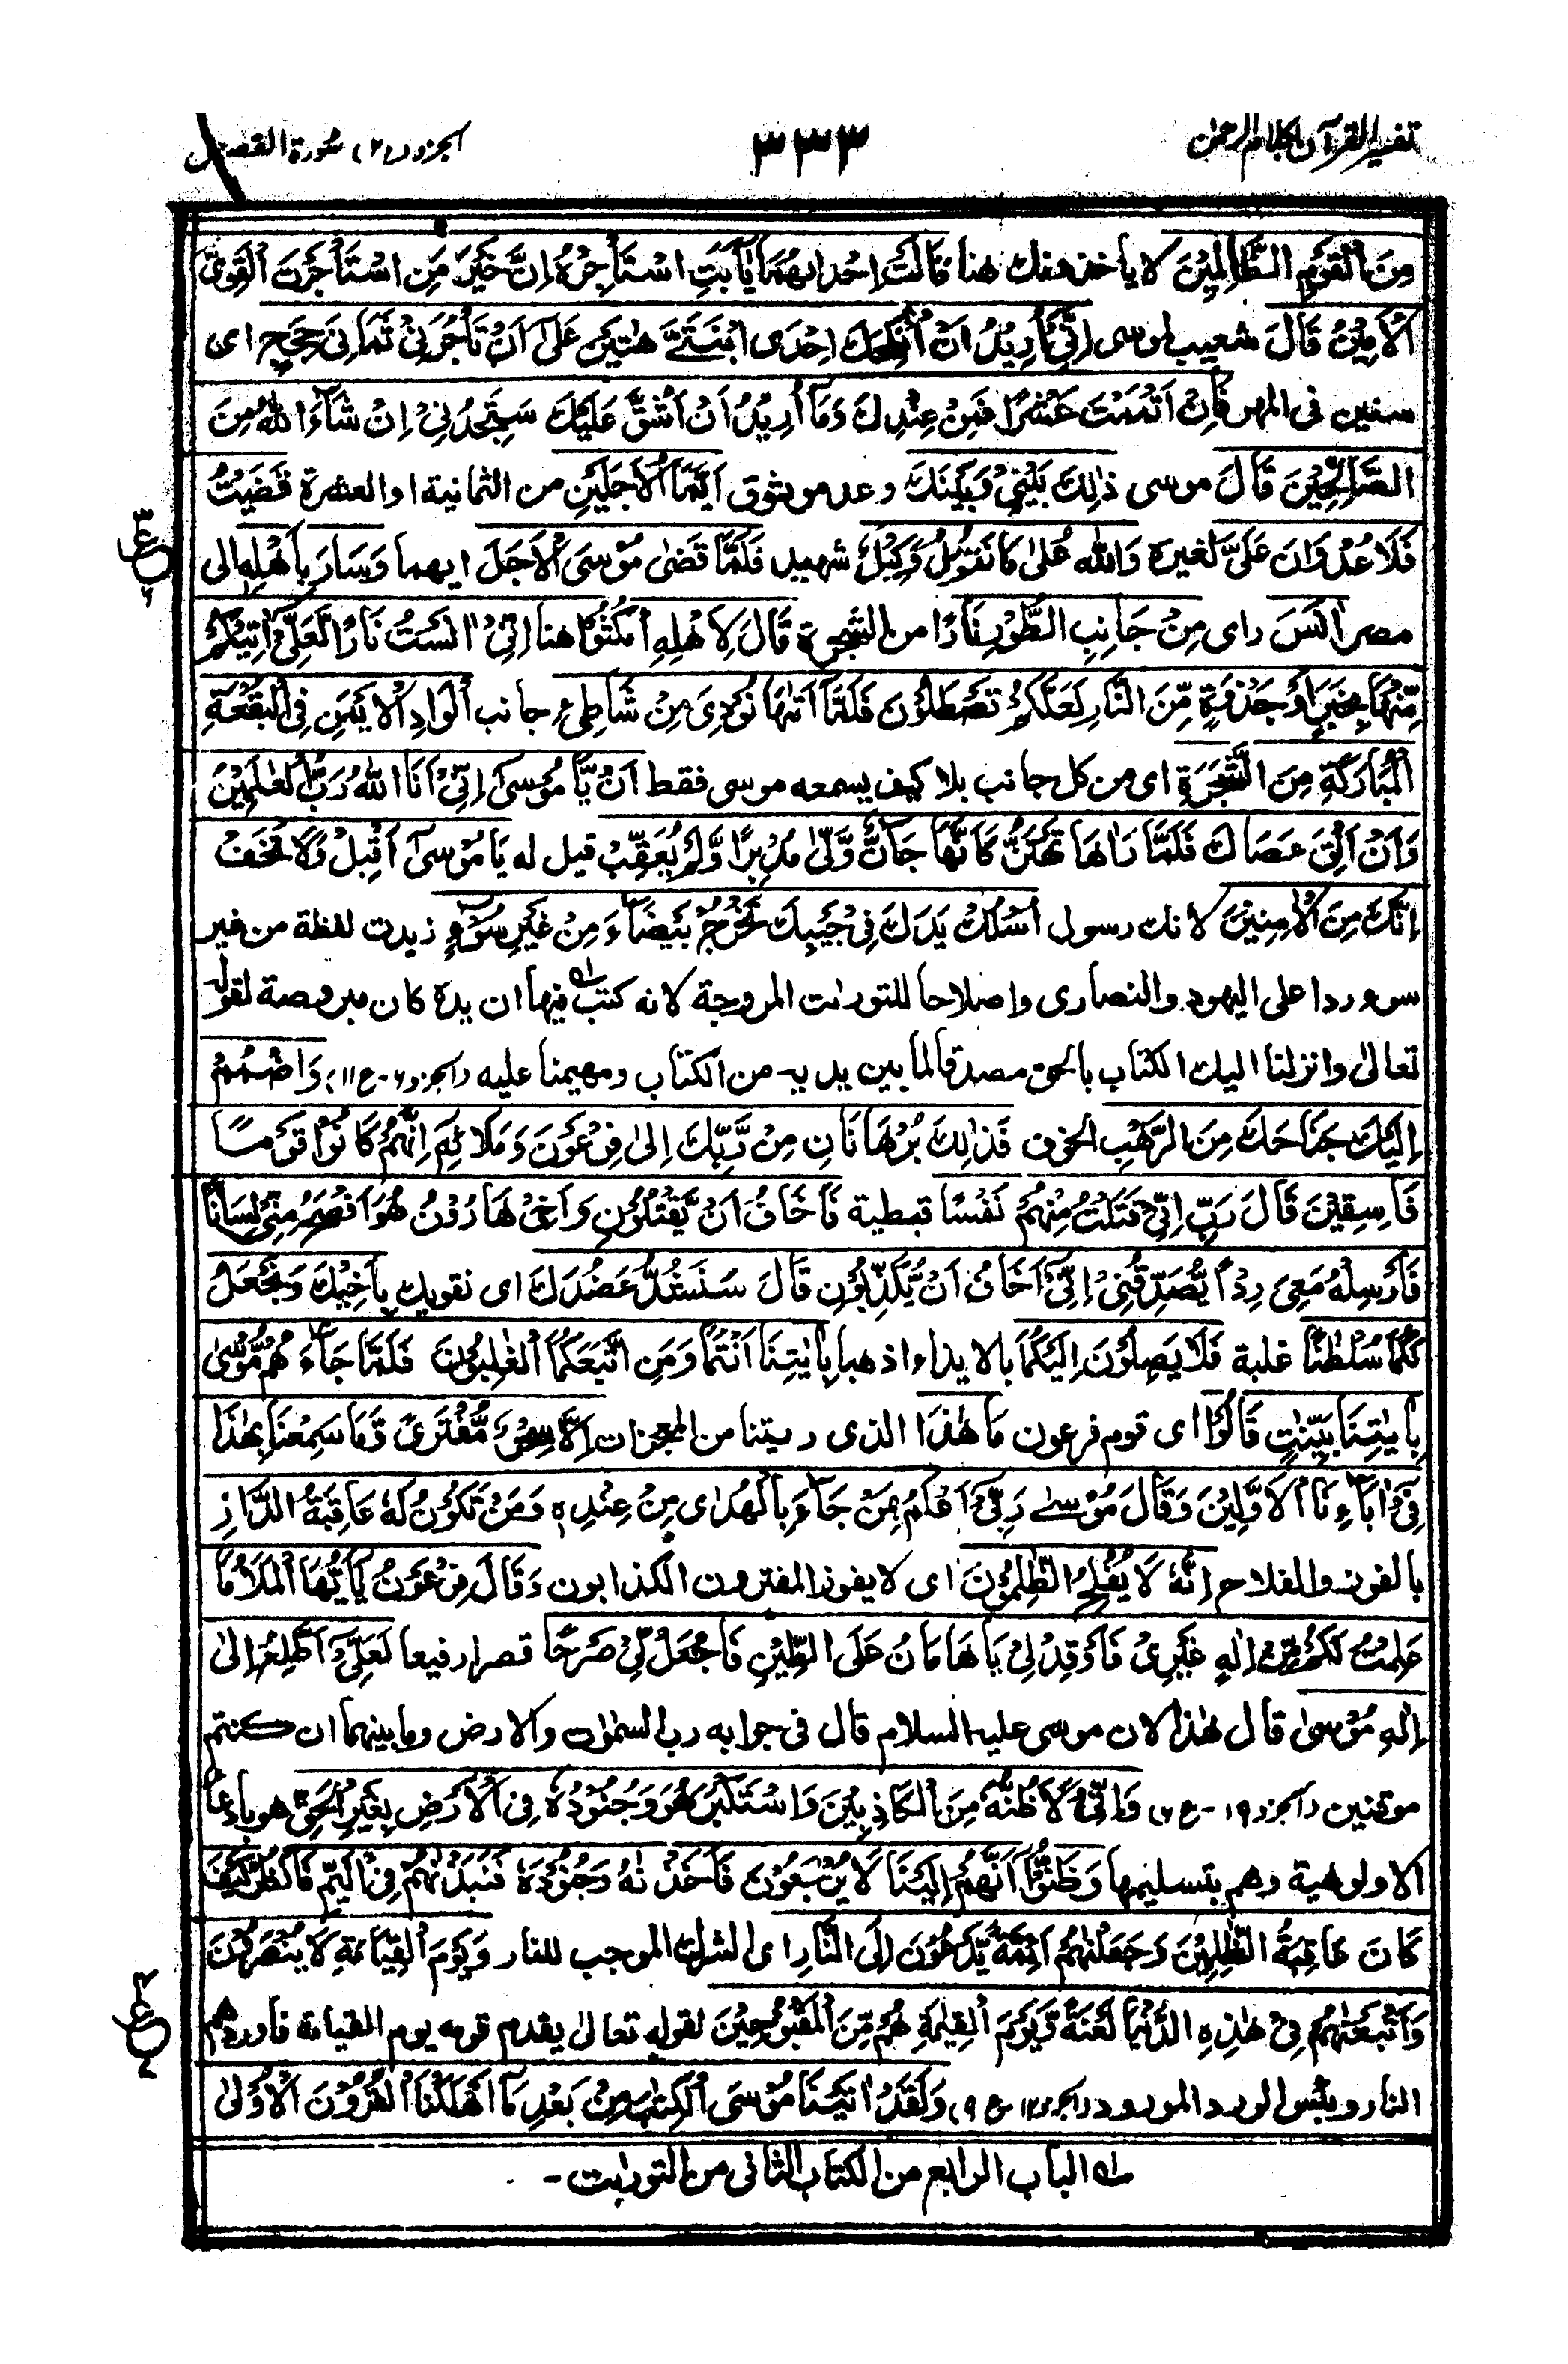 تفسير القرآن بكلام الرحمن ٣٣٣ الجزو (٢٠) سورة القصص
مِنَ الْقَوْمِ الظَّالِمِيْنَ لا يأخذونك هنا قَالَتْ اِحْدٰىهُمَا يٰٓاَبَتِ اسْتَأْجِرْهُ اِنَّ خَيْرَ مَنِ اسْتَأْجَرْتَ الْقَوِىُّ
الْاَمِيْنُ قَالَ شعيب لموسى اِنِّىْٓ اُرِيْدُ اَنْ اُنْكِحَكَ اِحْدَى ابْنَتَىَّ هٰتَيْنِ عَلٰٓى اَنْ تَأْجُرَنِىْ ثَمَانِىَ حِجَجٍ اى
سنين فى المهر فَاِنْ اَتْمَمْتَ عَشْرًا فَمِنْ عِنْدِكَ وَمَآ اُرِيْدُ اَنْ اَشُقَّ عَلَيْكَ سَتَجِدُنِىْ اِنْ شَآءَ اللّٰهُ مِنَ
الصَّالِحِيْنَ قَالَ موسى ذٰلِكَ بَيْنِىْ وَبَيْنَكَ وعد موثوق اَيَّمَا الْاَجَلَيْنِ من الثمانية او العشرة قَضَيْتُ
فَلَا عُدْوَانَ عَلَىَّ لغيره وَاللّٰهُ عَلٰى مَا نَقُوْلُ وَكِيْلٌ شهيد فَلَمَّا قَضٰى مُوْسَى الْاَجَلَ ايهما وَسَارَ بِاَهْلِهٖ الى
مصر اٰنَسَ راى مِنْ جَانِبِ الطُّوْرِ نَارًا من الشجرة قَالَ لِاَهْلِهِ امْكُثُوْٓا هنا اِنِّىْٓ اٰنَسْتُ نَارًا لَّعَلِّىْٓ اٰتِيْكُمْ
مِّنْهَا بِخَبَرٍ اَوْ جَذْوَةٍ مِّنَ النَّارِ لَعَلَّكُمْ تَصْطَلُوْنَ فَلَمَّآ اَتٰىهَا نُوْدِىَ مِنْ شَاطِئِ جانب الْوَادِ الْاَيْمَنِ فِى الْبُقْعَةِ
الْمُبَارَكَةِ مِنَ الشَّجَرَةِ اى من كل جانب بلا كيف يسمعه موسى فقط اَنْ يّٰمُوْسٰٓى اِنِّىْٓ اَنَا اللّٰهُ رَبُّ الْعٰلَمِيْنَ
وَاَنْ اَلْقِ عَصَاكَ فَلَمَّا رَاٰهَا تَهْتَزُّ كَاَنَّهَا جَآنٌّ وَّلّٰى مُدْبِرًا وَّلَمْ يُعَقِّبْ قيل له يَا مُوْسٰٓى اَقْبِلْ وَلَا تَخَفْ
اِنَّكَ مِنَ الْاٰمِنِيْنَ لانك رسول اُسْلُكْ يَدَكَ فِىْ جَيْبِكَ تَخْرُجْ بَيْضَآءَ مِنْ غَيْرِ سُوْٓءٍ زيدت لفظة من غير
سوء ردا على اليهود والنصارى واصلاحا للتورات المروجة لانه كتب فيها ان يده كان مبروصة لقوله
تعالى وانزلنا اليك الكتاب بالحق مصدقا لما بين يديه من الكتاب ومهيمنا عليه (الجزو ٦-ع ١١) وَاضْمُمْ
اِلَيْكَ جَنَاحَكَ مِنَ الرَّهْبِ الخوف فَذٰنِكَ بُرْهَانَانِ مِنْ رَّبِّكَ اِلٰى فِرْعَوْنَ وَمَلَائِهٖ اِنَّهُمْ كَانُوْا قَوْمًا
فَاسِقِيْنَ قَالَ رَبِّ اِنِّىْ قَتَلْتُ مِنْهُمْ نَفْسًا قبطية فَاَخَافُ اَنْ يَّقْتُلُوْنِ وَاَخِىْ هَارُوْنُ هُوَ اَفْصَحُ مِنِّىْ لِسَانًا
فَاَرْسِلْهُ مَعِىَ رِدْاً يُّصَدِّقُنِىْ اِنِّىْٓ اَخَافُ اَنْ يُّكَذِّبُوْنِ قَالَ سَنَشُدُّ عَضُدَكَ اى نقويك بِاَخِيْكَ وَنَجْعَلُ
لَكُمَا سُلْطٰنًا غلبة فَلَا يَصِلُوْنَ اِلَيْكُمَا بالايذاء اذهبا بِاٰيٰتِنَا اَنْتُمَا وَمَنِ اتَّبَعَكُمَا الْغٰلِبُوْنَ فَلَمَّا جَآءَهُمْ مُّوْسٰى
بِاٰيٰتِنَا بَيِّنٰتٍ قَالُوْا اى قوم فرعون مَا هٰذَآ الذى ريتنا من المعجزات اِلَّا سِحْرٌ مُّفْتَرًى وَّمَا سَمِعْنَا بِهٰذَا
فِىْٓ اٰبَآءِنَا الْاَوَّلِيْنَ وَقَالَ مُوْسٰى رَبِّىْٓ اَعْلَمُ بِمَنْ جَآءَ بِالْهُدٰى مِنْ عِنْدِهٖ وَمَنْ تَكُوْنُ لَهٗ عَاقِبَةُ الدَّارِ
بالفوز والفلاح اِنَّهٗ لَا يُفْلِحُ الظّٰلِمُوْنَ اى لا يفوز المفترون الكذابون وَقَالَ فِرْعَوْنُ يٰٓاَيُّهَا الْمَلَاُ مَا
عَلِمْتُ لَكُمْ مِّنْ اِلٰهٍ غَيْرِىْ فَاَوْقِدْ لِىْ يَا هَامَانُ عَلَى الطِّيْنِ فَاجْعَلْ لِّىْ صَرْحًا قصرا رفيعا لَعَلِّىْٓ اَطَّلِعُ اِلٰٓى
اِلٰهِ مُوْسٰى قال هذا لان موسى عليه السلام قال فى جوابه رب السمٰوات والارض وما بينهما ان كنتم
موقنين (الجزو ١٩-ع ٦) وَاِنِّىْ لَاَظُنُّهٗ مِنَ الْكَاذِبِيْنَ وَاسْتَكْبَرَ هُوَ وَجُنُوْدُهٗ فِى الْاَرْضِ بِغَيْرِ الْحَقِّ هو بادعاء
الاولوهية وهم بتسليمها وَظَنُّوْٓا اَنَّهُمْ اِلَيْنَا لَا يُرْجَعُوْنَ فَاَخَذْنٰهُ وَجُنُوْدَهٗ فَنَبَذْنٰهُمْ فِى الْيَمِّ فَانْظُرْ كَيْفَ
كَانَ عَاقِبَةُ الظّٰلِمِيْنَ وَجَعَلْنٰهُمْ اَئِمَّةً يَّدْعُوْنَ اِلَى النَّارِ اى الشرك الموجب للنار وَيَوْمَ الْقِيَامَةِ لَا يُنْصَرُوْنَ
وَاَتْبَعْنٰهُمْ فِىْ هٰذِهِ الدُّنْيَا لَعْنَةً وَّيَوْمَ الْقِيٰمَةِ هُمْ مِّنَ الْمَقْبُوْحِيْنَ لقوله تعالى يقدم قومه يوم القيامة فأوردهم
النار وبئس الورد المورود (الجزو ١٢-ع ٩) وَلَقَدْ اٰتَيْنَا مُوْسَى الْكِتٰبَ مِنْۢ بَعْدِ مَآ اَهْلَكْنَا الْقُرُوْنَ الْاُوْلٰى
له الباب الرابع من الكتاب الثانى من التورايت -